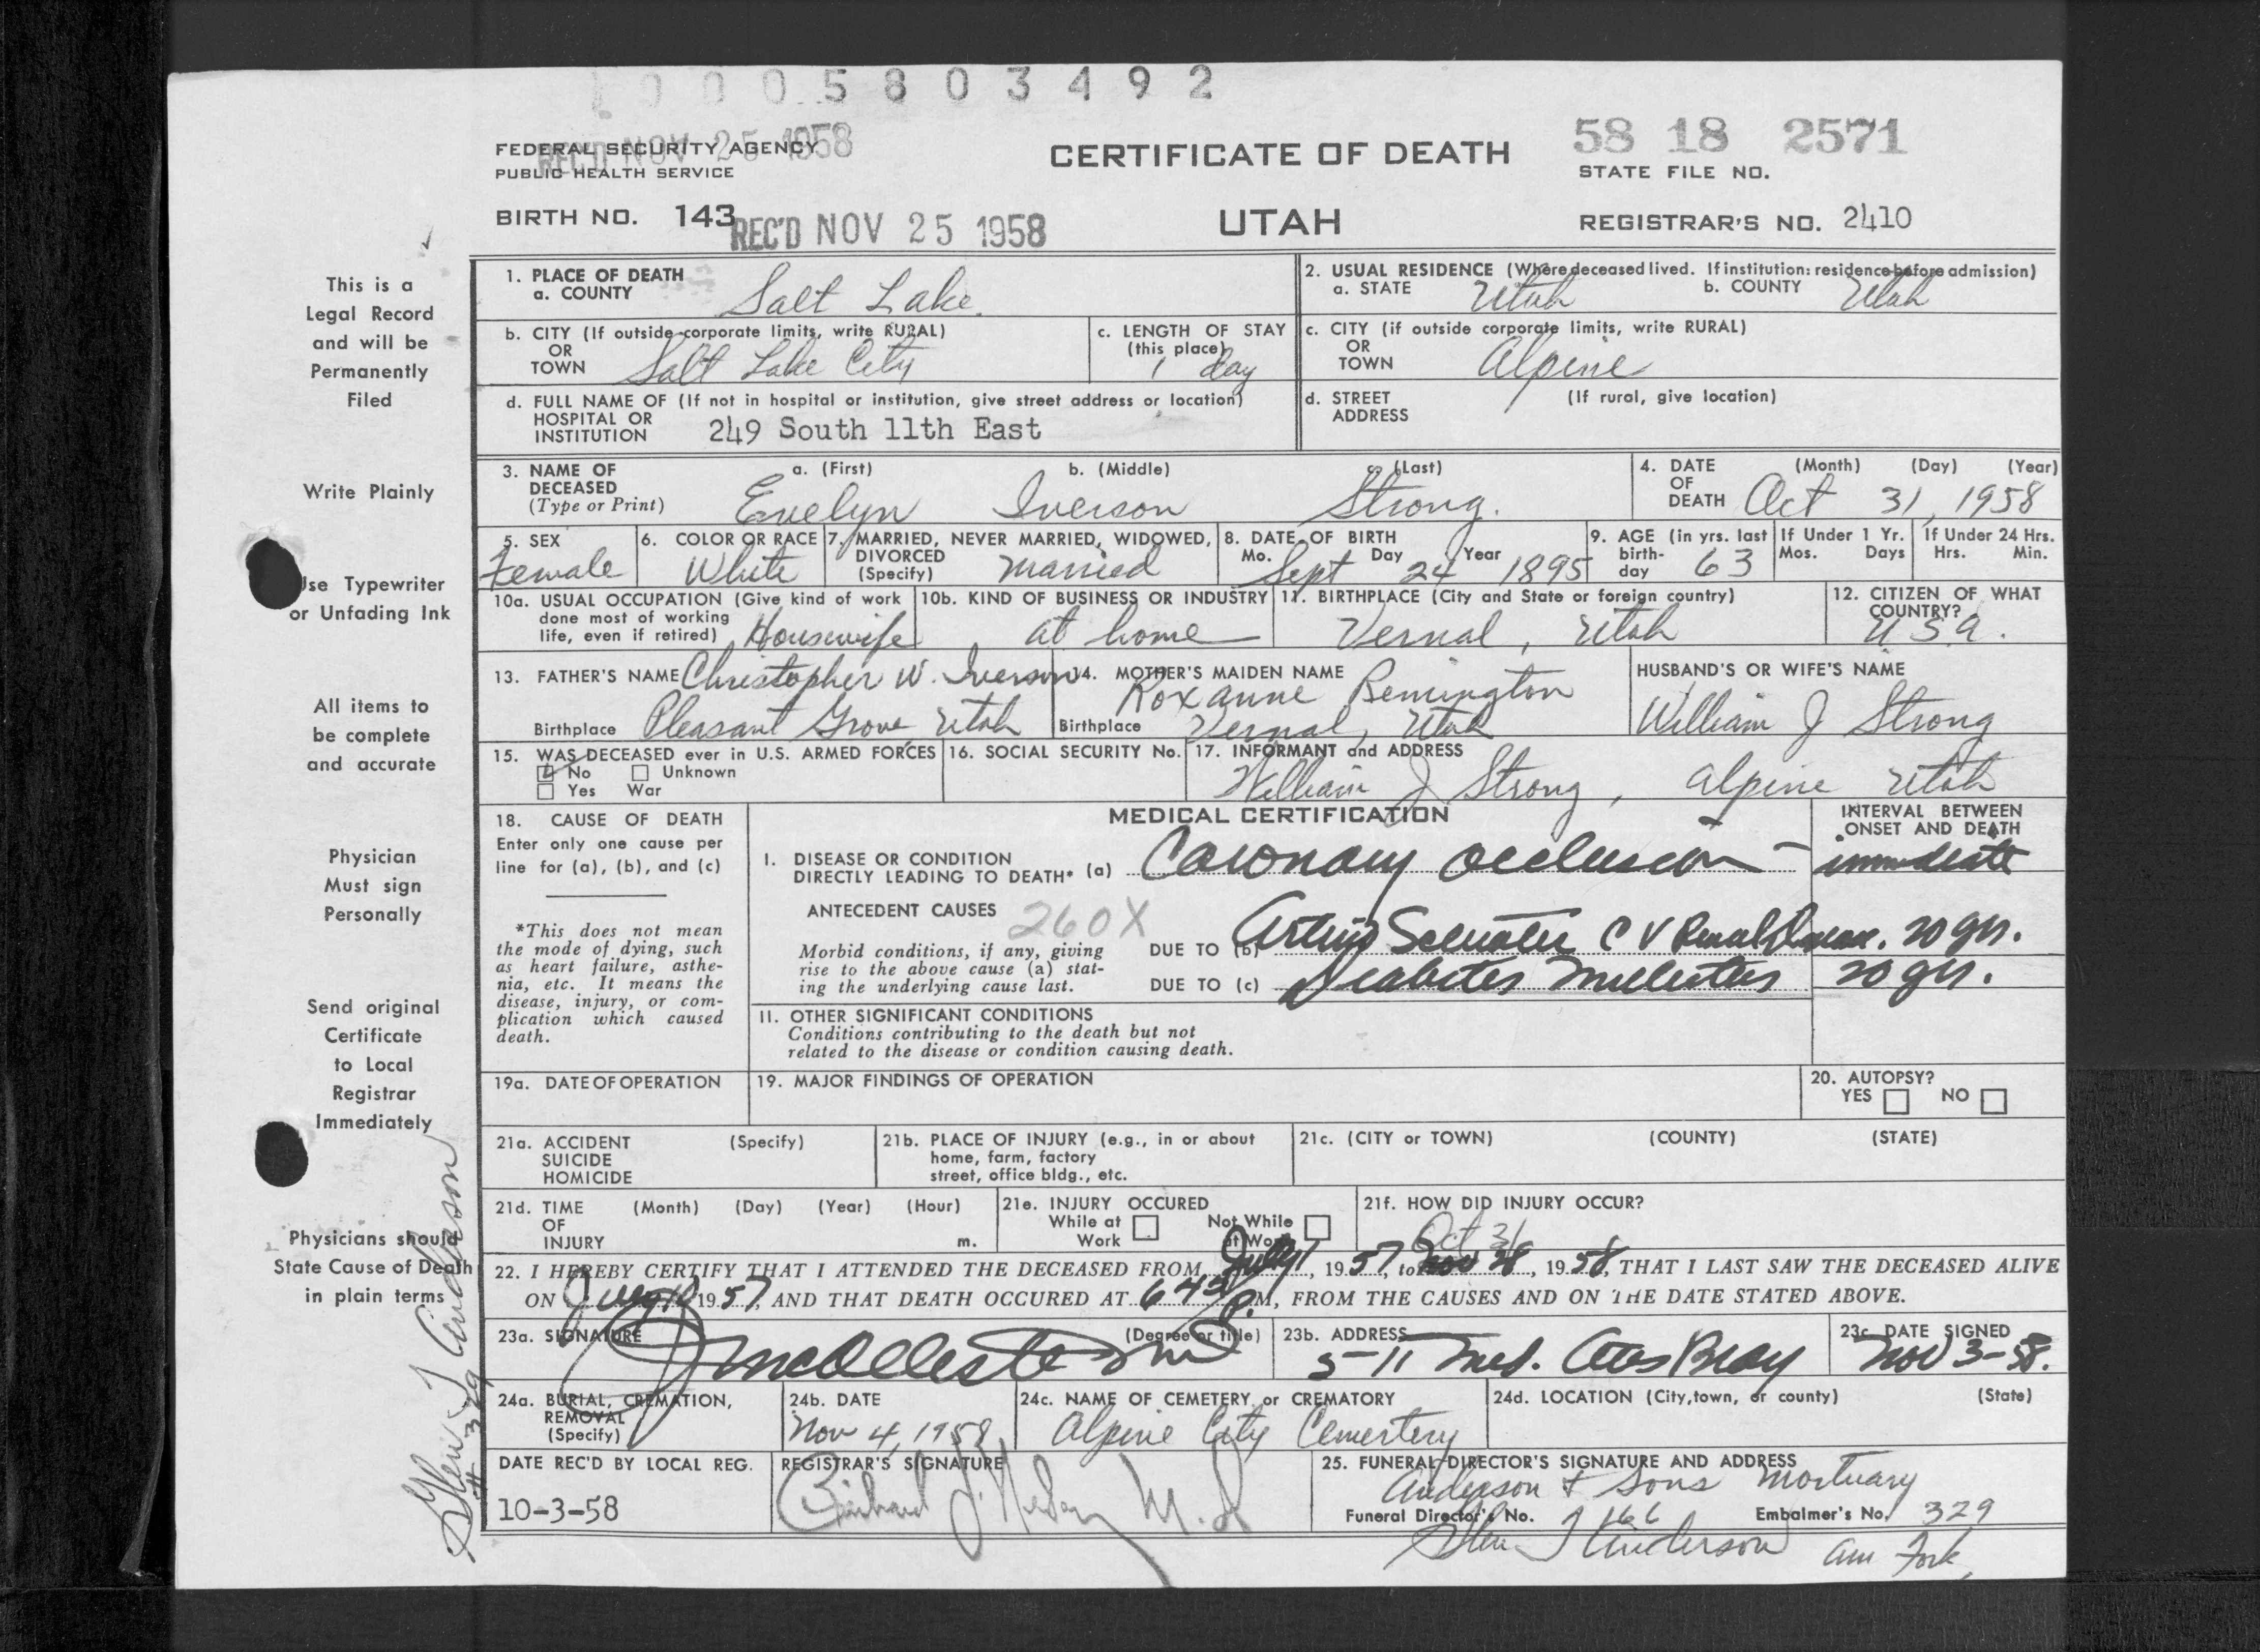 10005803492
FEDERAL SECURITY AGENCY
PUBLIC HEALTH SERVICE
REC'D NOV 25 1958
CERTIFICATE OF DEATH
58 18 2571
STATE FILE NO.
BIRTH NO. 143
REC'D NOV 25 1958
UTAH
REGISTRAR'S NO. 2410
This is a
Legal Record
and will be
Permanently
Filed
Write Plainly
Use Typewriter
or Unfading Ink
All items to
be complete
and accurate
Physician
Must sign
Personally
Send original
Certificate
to Local
Registrar
Immediately
Physicians should
State Cause of Death
in plain terms
Glen J Anderson
# 329
1. PLACE OF DEATH
a. COUNTY Salt Lake.
2. USUAL RESIDENCE (Where deceased lived. If institution: residence before admission)
a. STATE Utah b. COUNTY Utah
b. CITY (If outside corporate limits, write RURAL)
OR
TOWN Salt Lake City
c. LENGTH OF STAY
(this place)
1 day
c. CITY (if outside corporate limits, write RURAL)
OR
TOWN Alpine
d. FULL NAME OF (If not in hospital or institution, give street address or location)
HOSPITAL OR
INSTITUTION 249 South 11th East
d. STREET (If rural, give location)
ADDRESS
3. NAME OF DECEASED
(Type or Print)
a. (First) b. (Middle) c. (Last)
Evelyn Iverson Strong.
4. DATE OF DEATH (Month) (Day) (Year)
Oct 31, 1958
5. SEX
Female
6. COLOR OR RACE
White
7. MARRIED, NEVER MARRIED, WIDOWED,
DIVORCED
(Specify) Married
8. DATE OF BIRTH
Mo. Day Year
Sept 24 1895
9. AGE (in yrs. last
birth-
day 63
If Under 1 Yr.
Mos. Days
If Under 24 Hrs.
Hrs. Min.
10a. USUAL OCCUPATION (Give kind of work
done most of working
life, even if retired) Housewife
10b. KIND OF BUSINESS OR INDUSTRY
at home
11. BIRTHPLACE (City and State or foreign country)
Vernal, Utah
12. CITIZEN OF WHAT
COUNTRY?
U.S.A.
13. FATHER'S NAME Christopher W. Iverson
Birthplace Pleasant Grove Utah
14. MOTHER'S MAIDEN NAME
Roxanne Remington
Birthplace Vernal, Utah
HUSBAND'S OR WIFE'S NAME
William J Strong
15. WAS DECEASED ever in U.S. ARMED FORCES
No Unknown
Yes War
16. SOCIAL SECURITY No.
17. INFORMANT and ADDRESS
William J Strong, Alpine Utah
18. CAUSE OF DEATH
Enter only one cause per
line for (a), (b), and (c)
*This does not mean
the mode of dying, such
as heart failure, asthe-
nia, etc. It means the
disease, injury, or com-
plication which caused
death.
MEDICAL CERTIFICATION
INTERVAL BETWEEN
ONSET AND DEATH
I. DISEASE OR CONDITION
DIRECTLY LEADING TO DEATH* (a) Coronary occlusion immediate
ANTECEDENT CAUSES 260X
Morbid conditions, if any, giving
rise to the above cause (a) stat-
ing the underlying cause last.
DUE TO (b) C V Renal 20 yrs.
DUE TO (c) Diabetes Mellitus 20 yrs.
11. OTHER SIGNIFICANT CONDITIONS
Conditions contributing to the death but not
related to the disease or condition causing death.
19a. DATE OF OPERATION
19. MAJOR FINDINGS OF OPERATION
20. AUTOPSY?
YES NO
21a. ACCIDENT (Specify)
SUICIDE
HOMICIDE
21b. PLACE OF INJURY (e.g., in or about
home, farm, factory
street, office bldg., etc.
21c. (CITY or TOWN) (COUNTY) (STATE)
21d. TIME (Month) (Day) (Year) (Hour)
OF
INJURY m.
21e. INJURY OCCURED
While at Work Not While at Work
21f. HOW DID INJURY OCCUR?
Oct 31
22. I HEREBY CERTIFY THAT I ATTENDED THE DECEASED FROM July 1, 1957, to 1958, THAT I LAST SAW THE DECEASED ALIVE
ON 1957, AND THAT DEATH OCCURED AT 645 P.M, FROM THE CAUSES AND ON THE DATE STATED ABOVE.
23a. SIGNATURE (Degree or title)
23b. ADDRESS
5-11 Med.
23c. DATE SIGNED
Nov 3-58.
24a. BURIAL, CREMATION,
REMOVAL
(Specify)
24b. DATE
Nov 4, 1958
24c. NAME OF CEMETERY or CREMATORY
Alpine City Cemertery
24d. LOCATION (City, town, or county) (State)
DATE REC'D BY LOCAL REG.
10-3-58
REGISTRAR'S SIGNATURE
25. FUNERAL DIRECTOR'S SIGNATURE AND ADDRESS
Anderson & Sons Mortuary
Funeral Director's No. 166 Embalmer's No. 329
Glen J Anderson Am Fork,